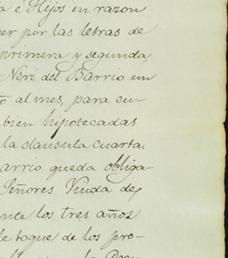 é Hijos en razon
er por las letras de
primera y segunda
Neri del Barrio un
to al mes, para cu-
bien hipotecadas
la clausula cuarta.
arrio queda obliga-
Señores Viuda de
nte los tres años
le toque de los